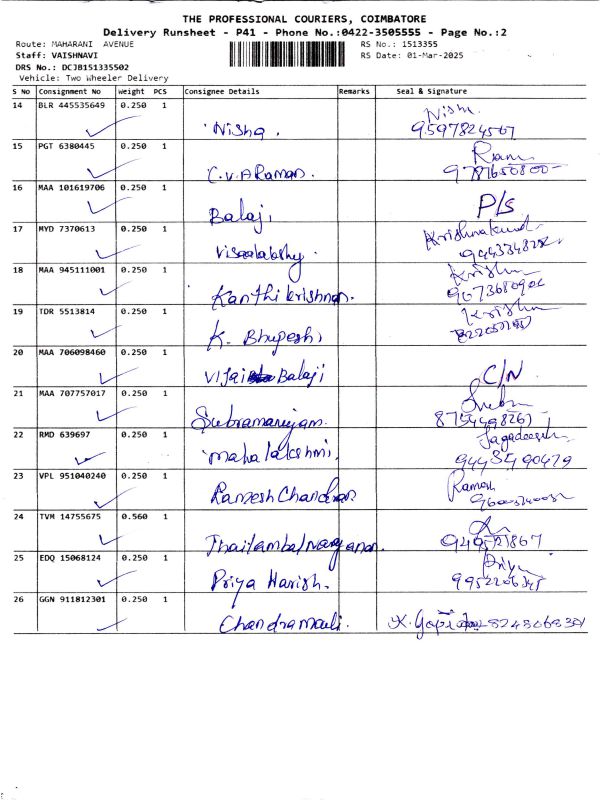 THE PROFESSIONAL COURIERS, COIMBATORE
Delivery Runsheet - P41 - Phone No.:0422-3505555 - Page No.:2
Route: MAHARANI AVENUE
RS No.: 1513355
Staff: VAISHNAVI
RS Date: 01-Mar-2025
DRS No.: DCJB151335502
Vehicle: Two Wheeler Delivery
S No Consignment No Weight PCS Consignee Details Remarks Seal & Signature
14 BLR 445535649 0.250 1
Nisha. 9597824567
15 PGT 6380445 0.250 1 Ram
C.V.A Raman.
16 MAA 101619706 0.250 1
Balaji P/S
17 MYD 7370613 0.250 1
18 MAA 945111001 0.250 1 Krishna
Kanthi krishnan.
19 TDR 5513814 0.250 1 Krishna
K. Bhupeshi
20 MAA 706098460 0.250 1
Vijai Balaji C/N
21 MAA 707757017 0.250 1
Subramaniyam. 8754498267
22 RMD 639697 0.250 1 Jagadeesh
mahalakshmi. 9443590479
23 VPL 951040240 0.250 1 Ramesh
Ramesh Chandran
24 TVM 14755675 0.560 1
25 EDQ 15068124 0.250 1 Priya
Priya Harish. 9952206345
26 GGN 911812301 0.250 1
Chandramouli. K. Gopi